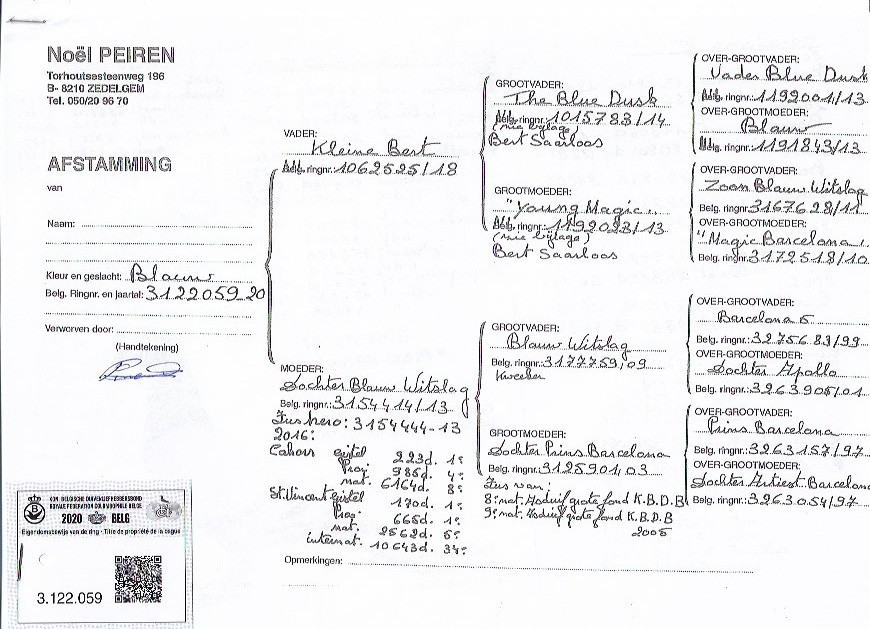 Noël PEIREN
Torhoutsesteenweg 196
B- 8210 ZEDELGEM
Tel. 050/20 96 70
AFSTAMMING
van
Naam:
Kleur en geslacht: Blauw
Belg. Ringnr. en jaartal: 3122059-20
Verworven door:
(Handtekening)
KON. BELGISCHE DUIVENLIEFHEBBERSBOND
ROYALE FEDERATION COLOMBOPHILE BELGE
2020 BELG
Eigendomsbewijs van de ring - Titre de propriété de la bague
3.122.059
VADER:
Kleine Bert
ringnr.: 1062525/18
MOEDER:
Dochter Blauw Witslag
Belg. ringnr.: 3154414/13
Zus hero: 3154444-13
2016:
Cahors Gistel 223d. 1e
Prov. 986d. 4e
nat. 6164d. 8e
St Vincent Gistel 170d. 1e
Prov. 665d. 1e
nat. 2562d. 5e
internat. 10643d. 34e
Opmerkingen:
GROOTVADER:
The Blue Dusk
ringnr. 1015783/14
(zie bijlage)
Bert Saarloos
GROOTMOEDER:
"Young Magic"
ringnr.: 1192023/13
(zie bijlage)
Bert Saarloos
GROOTVADER:
Blauw Witslag
Belg. ringnr.: 3177759/09
Kweker
GROOTMOEDER:
Dochter Prins Barcelona
Belg. ringnr.: 3125901/03
Zus van:
8e nat. Asduif grote fond K.B.D.B
9e nat. Asduif grote fond K.B.D.B
2005
OVER-GROOTVADER:
Vader Blue Dusk
ringnr.: 1199001/13
OVER-GROOTMOEDER:
Blauw
ringnr.: 1191843/13
OVER-GROOTVADER:
Zoon Blauw Witslag
Belg. ringnr. 3167628/11
OVER-GROOTMOEDER:
"Magic Barcelona"
Belg. ringnr.: 3172518/10
OVER-GROOTVADER:
Barcelona 5
Belg. ringnr.: 3275683/99
OVER-GROOTMOEDER:
Dochter Apollo
Belg. ringnr.: 3263905/01
OVER-GROOTVADER:
Prins Barcelona
Belg. ringnr.: 3263157/97
OVER-GROOTMOEDER:
Dochter Artiest Barcelona
Belg. ringnr.: 3263054/97